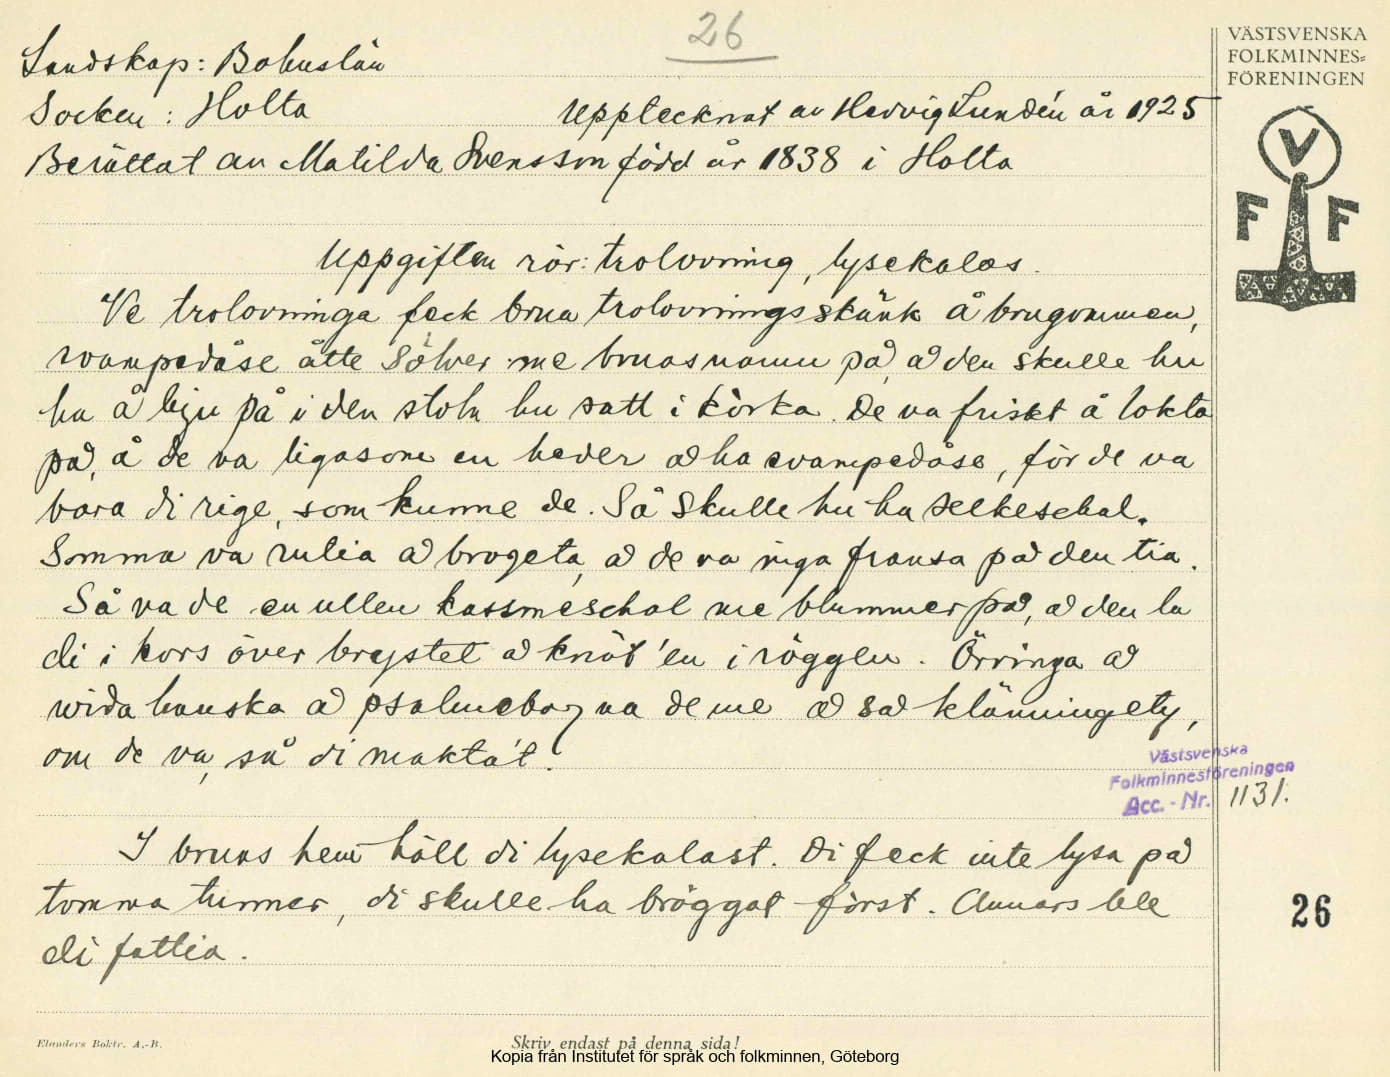 26
VÄSTSVENSKA
FOLKMINNES=
FÖRENINGEN
V
F F
Landskap: Bohuslän
Socken: Holta Upptecknat av Hedvig Lundén år 1925
Berättat av Matilda Svensson född år 1838 i Holta
Uppgiften rör: trolovning, lysekalas.
Ve trolovninga feck brua trolovningsskänk å brugommen,
svampedåse åtte sölver me bruas namn på, å den skulle hu
ha å liju på i den stoln hu satt i körka. De va friskt å lokta
på, å de va ligasom en heder å ha svampedåse, för de va
bara di rige, som kunne de. Så skulle hu ha selkeschal.
Somma va rutia å brogeta, å de va inga fransa på den tia.
Så va de en ullen kassmeschal me blummer på, å den la
di i kors över brystet å knöt 'en i röggen. Örringa å
wida hanska å psalmebog va de me å så klänningety,
om de va, så di makta't.
I bruas hem höll di lysekalast. Di feck inte lysa på
tomma tunner, di skulle ha bröggat först. Annars ble
di fattia.
Västsvenska
Folkminnesföreningen
Acc.-Nr. 1131.
26
Elanders Boktr. A.-B.
Skriv endast på denna sida!
Kopia från Institutet för språk och folkminnen, Göteborg